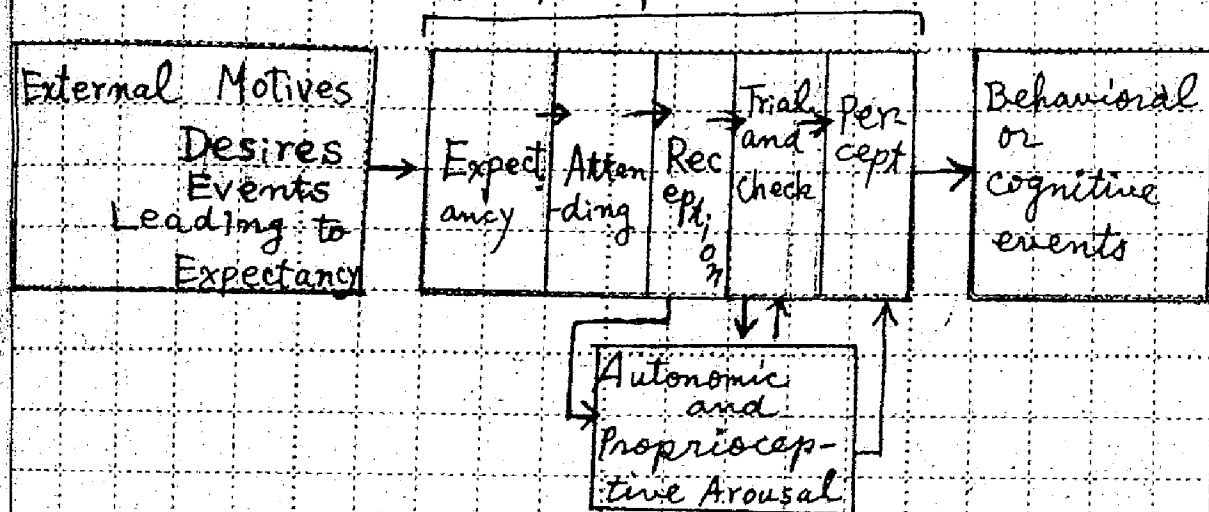 External Motives
Desires
Events
Leading to
Expectancy
Expect
ancy
Atten
-ding
Rec
epti
o
n
Trial
and
Check
Per-
cept
Behavioral
or
cognitive
events
Autonomic
and
Propriocep-
tive Arousal